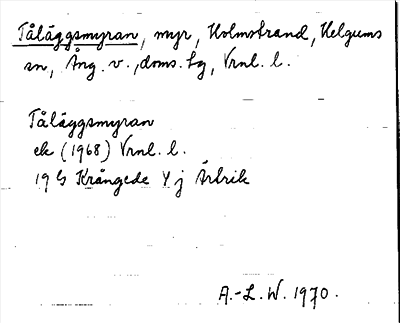 Tåläggsmyran, myr, Holmstrand, Helgums
sn, Ång. v., doms. hg, Vrnl. l.
Tåläggsmyran
ek (1968) Vrnl. l.
19 G Krångede Y j Årbrik
A.-L. W. 1970.